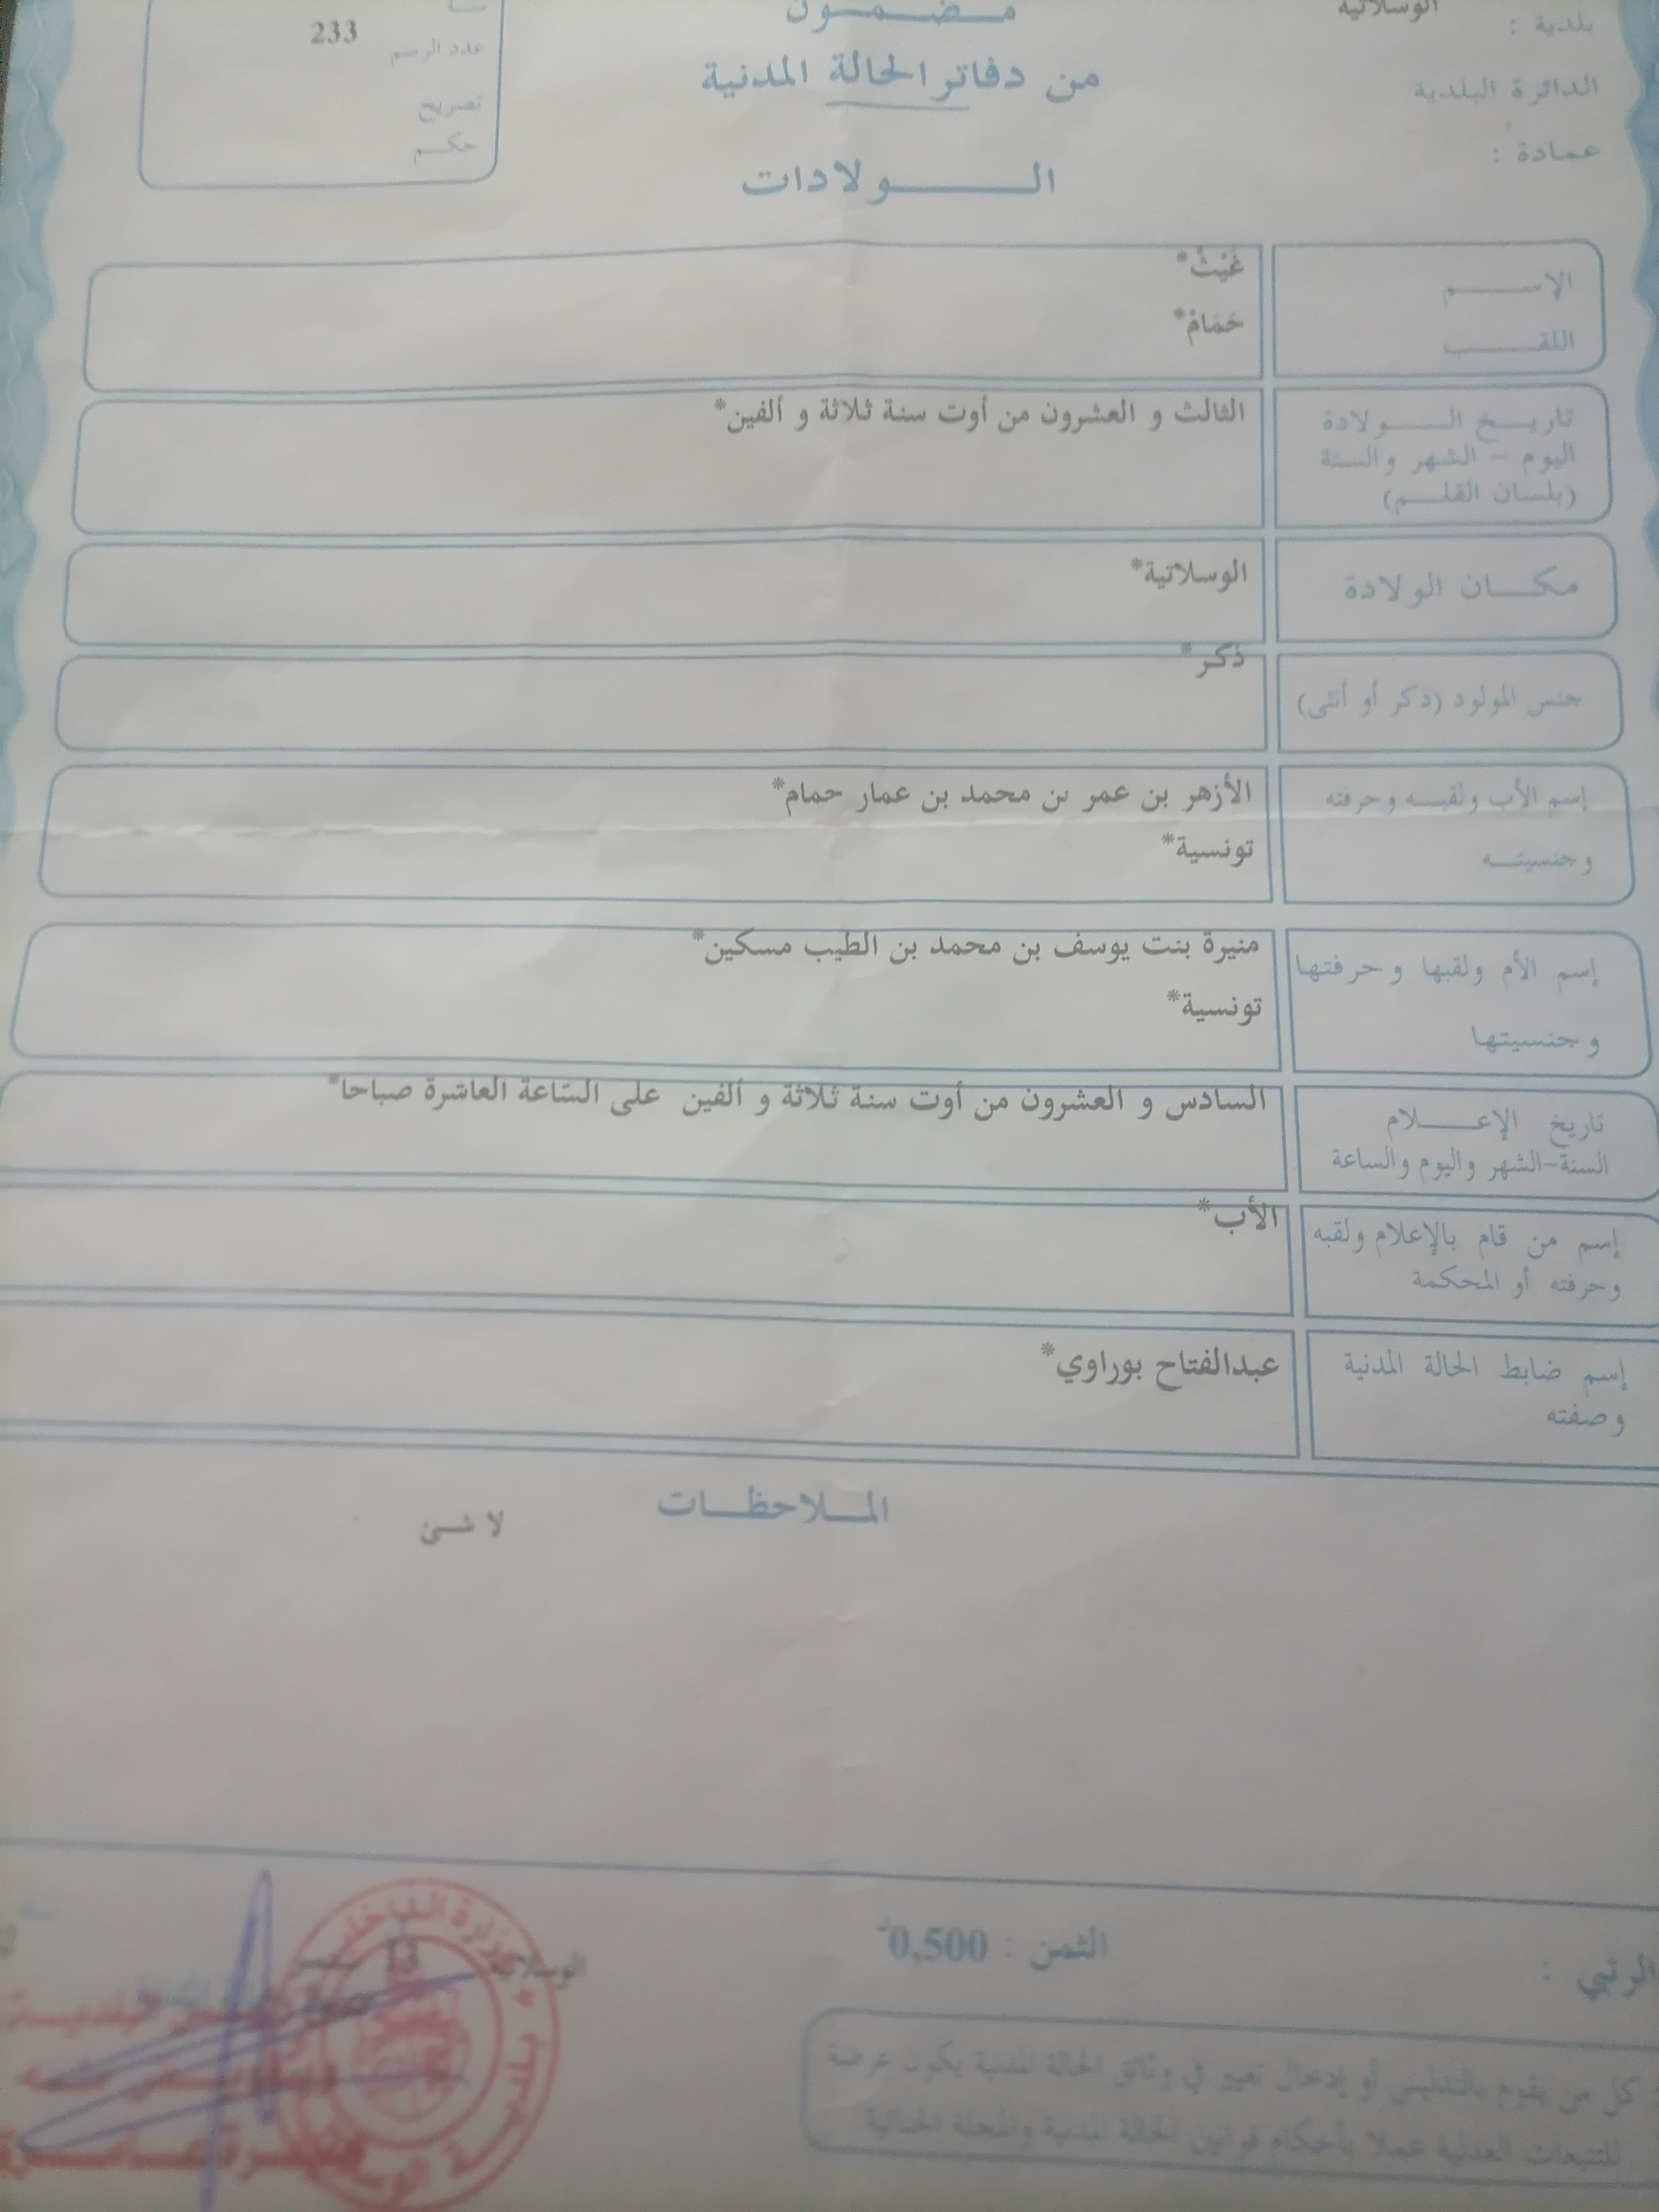 بلدية : الوسلاتية
الدائرة البلدية
عمادة :
مضمون
من دفاتر الحالة المدنية
الولادات
عدد الرسم 233
تصريح
حكم
الإسم غَيْثْ*
اللقب حَمَامْ*
تاريخ الولادة
اليوم - الشهر والسنة
(بلسان القلم)
الثالث و العشرون من أوت سنة ثلاثة و ألفين*
مكان الولادة الوسلاتية*
جنس المولود (ذكر أو أنثى) ذكر*
إسم الأب ولقبه وحرفته
وجنسيته
الأزهر بن عمر بن محمد بن عمار حمام*
تونسية*
إسم الأم ولقبها وحرفتها
وجنسيتها
منيرة بنت يوسف بن محمد بن الطيب مسكين*
تونسية*
تاريخ الإعلام
السنة-الشهر واليوم والساعة
السادس و العشرون من أوت سنة ثلاثة و ألفين على السّاعة العاشرة صباحا*
إسم من قام بالإعلام ولقبه
وحرفته أو المحكمة
الأب*
إسم ضابط الحالة المدنية
وصفته
عبدالفتاح بوراوي*
الملاحظات
لا شئ
الثمن : 0,500د
الوسلاتية 13
وزارة الداخلية
بلدية الوسلاتية
كل من يقوم بالتدليس أو إدخال تغيير في وثائق الحالة المدنية يكون عرضة
للتتبعات العدلية عملا بأحكام قوانين الحالة المدنية والمجلة الجنائية.